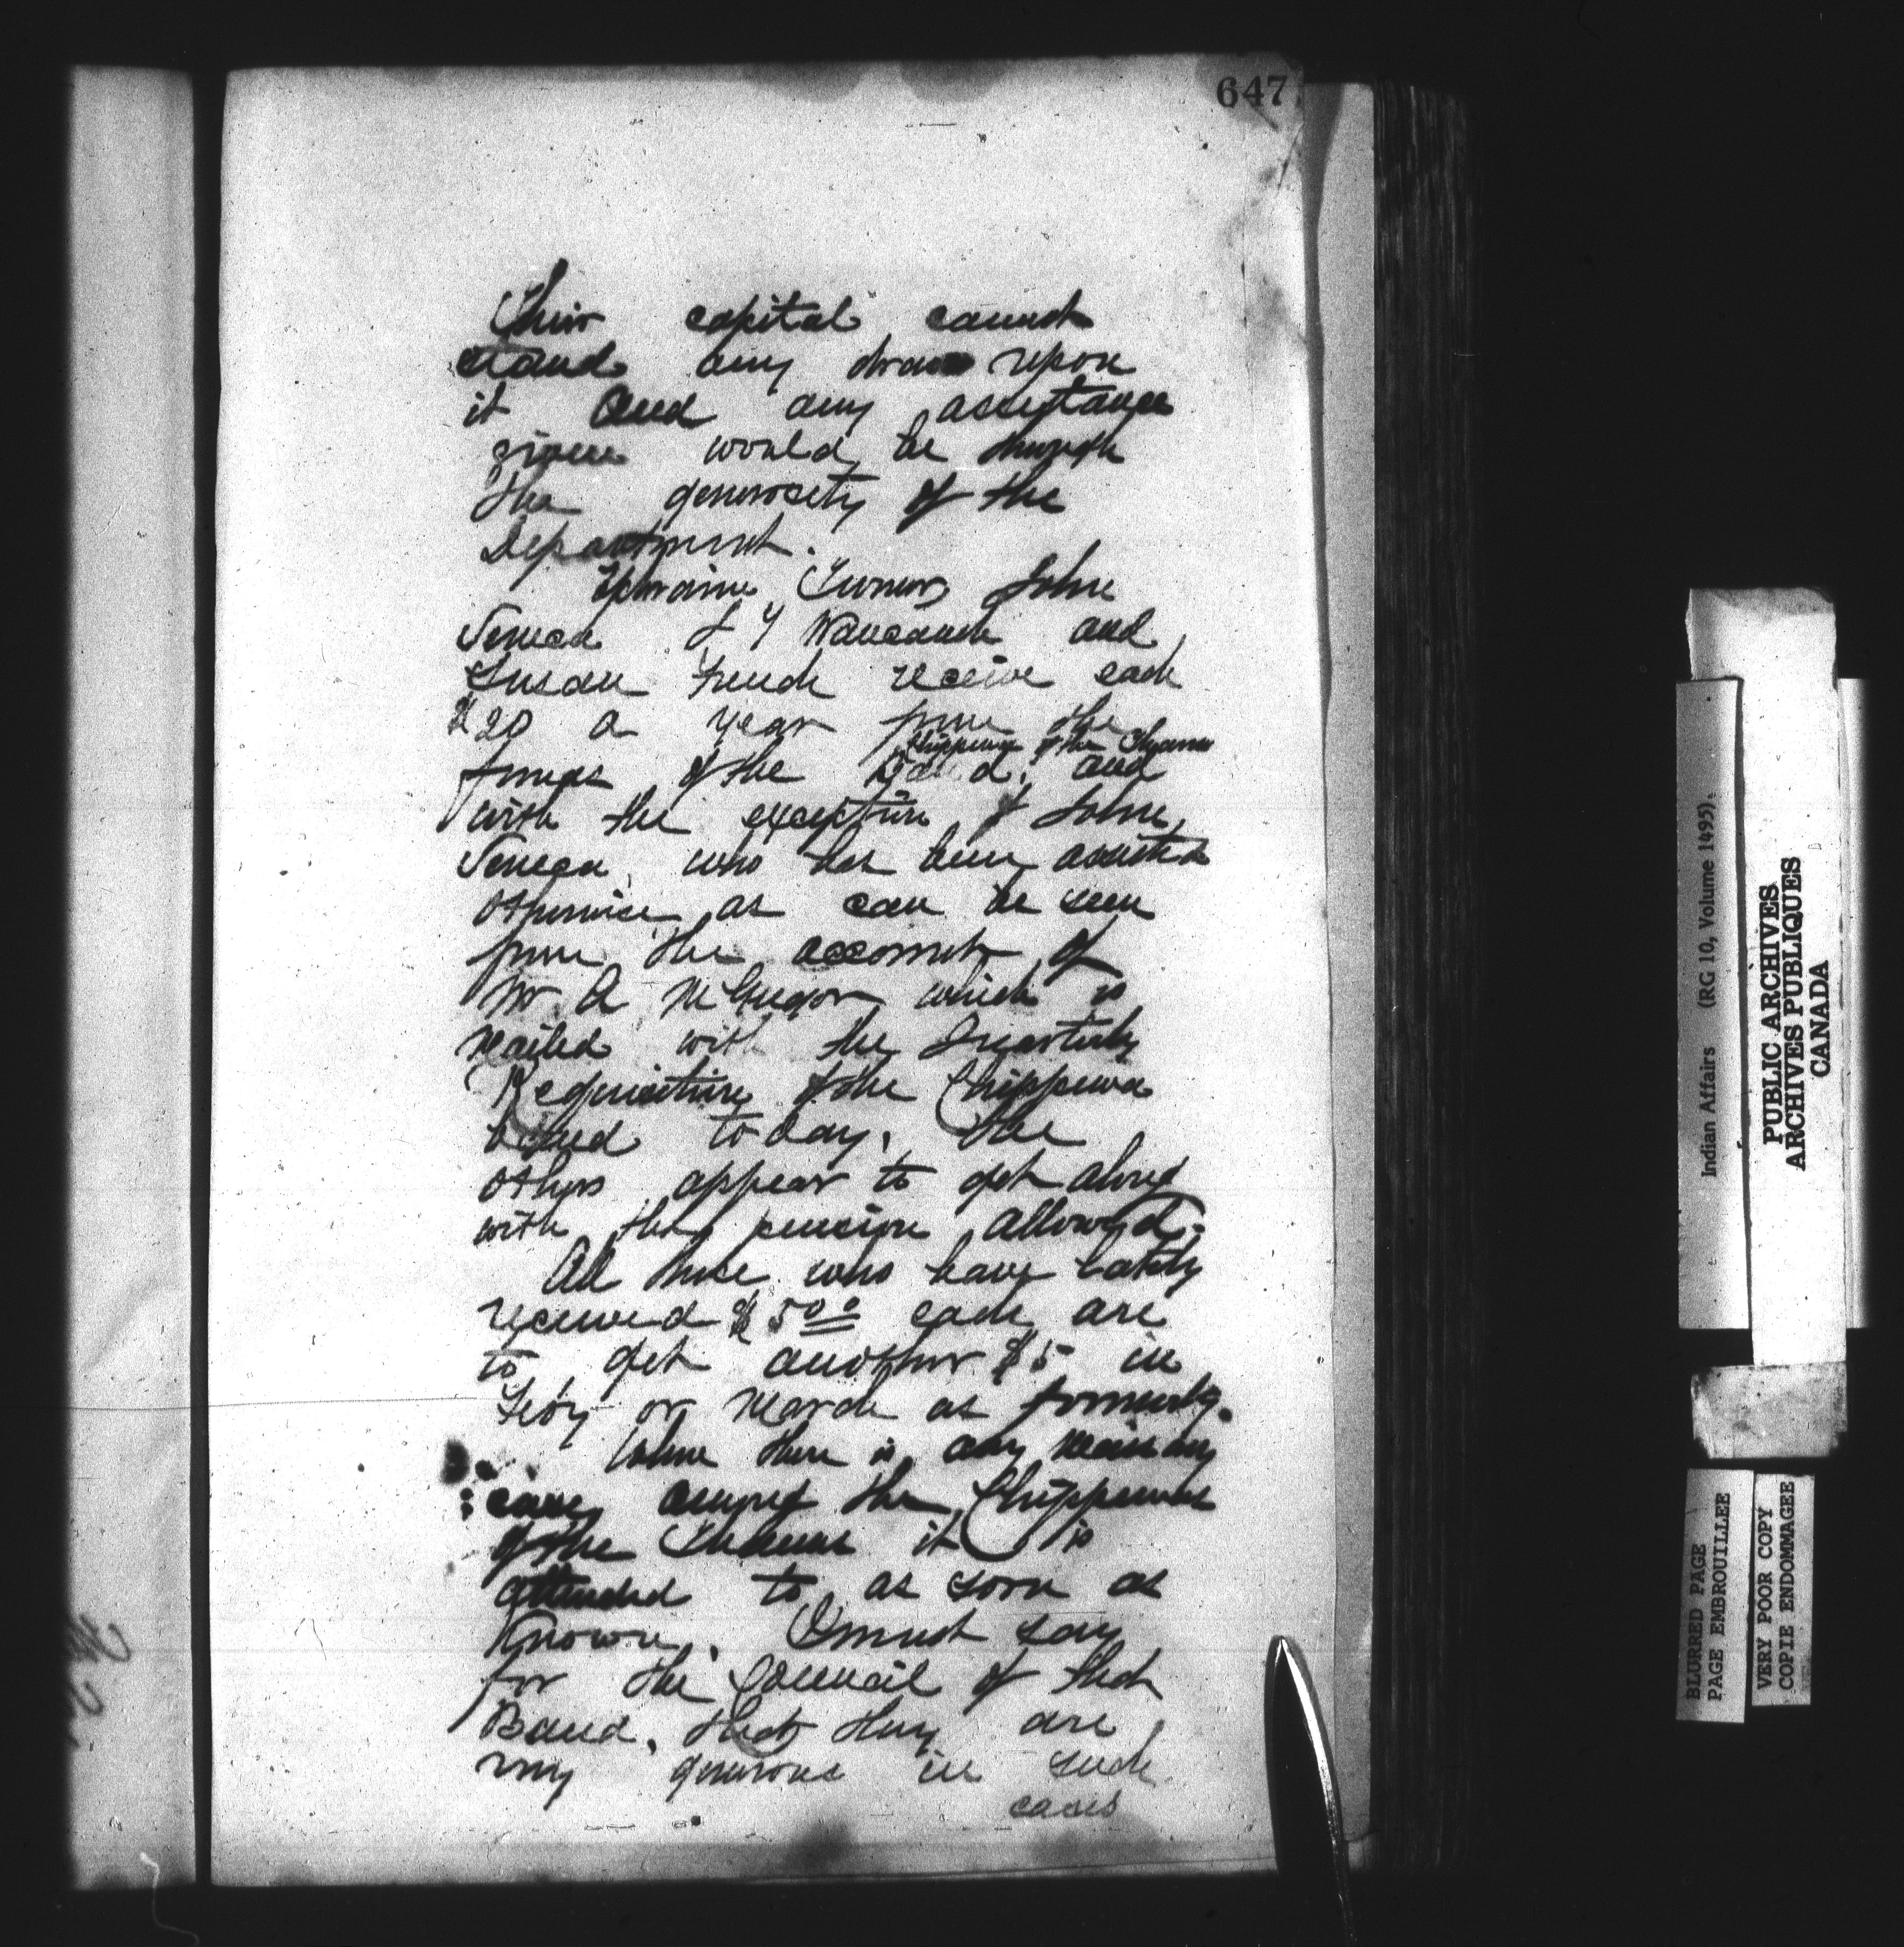 647
Their capital cannot
stand any draw upon
it and any assistance
given would be through
the generosity of the
Department.
Ephraim Turner, John
Seneca and
Susan French receive each
$20 a year from the
Chippewas of the Thames
funds of the Band, and
with the exception of John
Seneca, who has been assisted
otherwise, as can be seen
from the account of
Mr A McGregor which is
mailed with the Quarterly
Requisition of the Chippewa
band to day, the
others appear to get along
with the pension allowed.
All those who have lately
received $5 00 each are
to get another $5 in
Feby or March as formerly.
When there is any necessary
case among the Chippewas
of the Thames it is
attended to as soon as
known. I must say
for the Council of that
Band, that they are
very generous in such
cases
Indian Affairs (RG 10, Volume 1495)
PUBLIC ARCHIVES
ARCHIVES PUBLIQUES
CANADA
BLURRED PAGE
PAGE EMBROUILLEE
VERY POOR COPY
COPIE ENDOMMAGEE